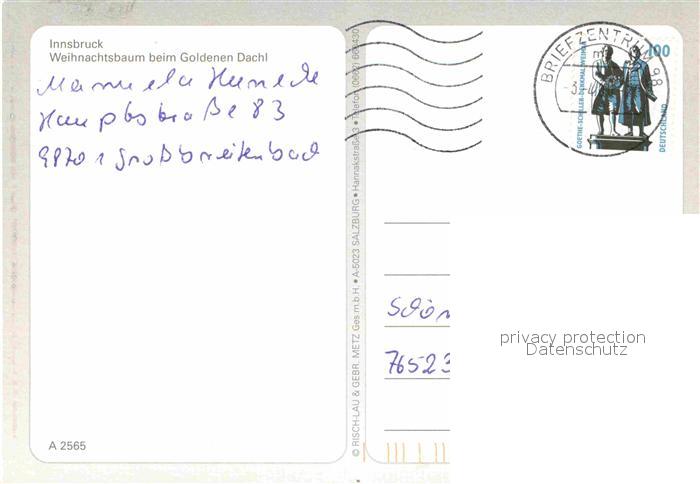 Innsbruck
Weihnachtsbaum beim Goldenen Dachl
Manuela
Hauptstraße 83
98701 Großbreitenbach
A 2565
© RISCH-LAU & GEBR. METZ Ges.m.b.H. • A-5023 SALZBURG • Hannakstraße 3 • Telefon (0662) 660430
BRIEFZENTRUM 98
100
GOETHE-SCHILLER-DENKMAL WEIMAR
DEUTSCHLAND
Schön
76523
privacy protection
Datenschutz